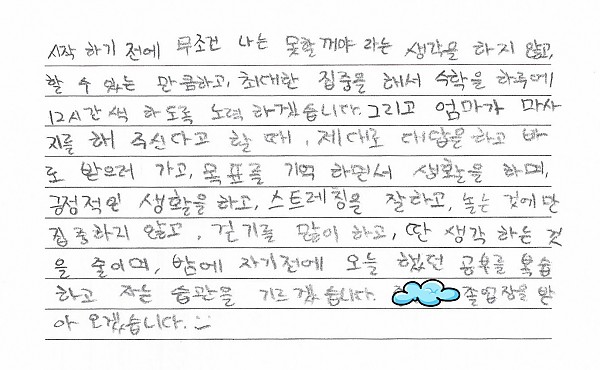 시작 하기 전에 무조건 나는 못할꺼야 라는 생각을 하지 않고,
할 수 있는 만큼하고, 최대한 집중을 해서 수학을 하루에
12시간 색 하도록 노력 하겠습니다. 그리고 엄마가 마사
지를 해 주신다고 할 때, 제대로 대답을 하고 바
로 받으러 가고, 목표를 기억 하면서 생활을 하며,
긍정적인 생활을 하고, 스트레칭을 잘하고, 노는 것에만
집중하지 않고, 걷기를 많이 하고, 딴 생각 하는 것
을 줄이며, 밤에 자기전에 오늘 했던 공부를 복습
하고 자는 습관을 기르겠습니다. 졸업장을 받
아 오겠습니다.